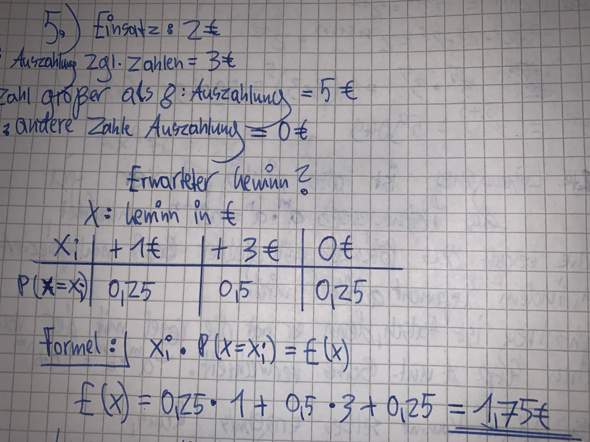 5.) Einsatz: 2€
: Auszahlung zgl. Zahlen = 3€
Zahl größer als 8: Auszahlung = 5€
: andere Zahle Auszahlung = 0€
Erwarteter Gewinn?
X: Gewinn in €
Xi | +1€ | +3€ | 0€
P(X=Xi) | 0,25 | 0,5 | 0,25
Formel: Xi · P(X=Xi) = E(X)
E(X) = 0,25 · 1 + 0,5 · 3 + 0,25 = 1,75€